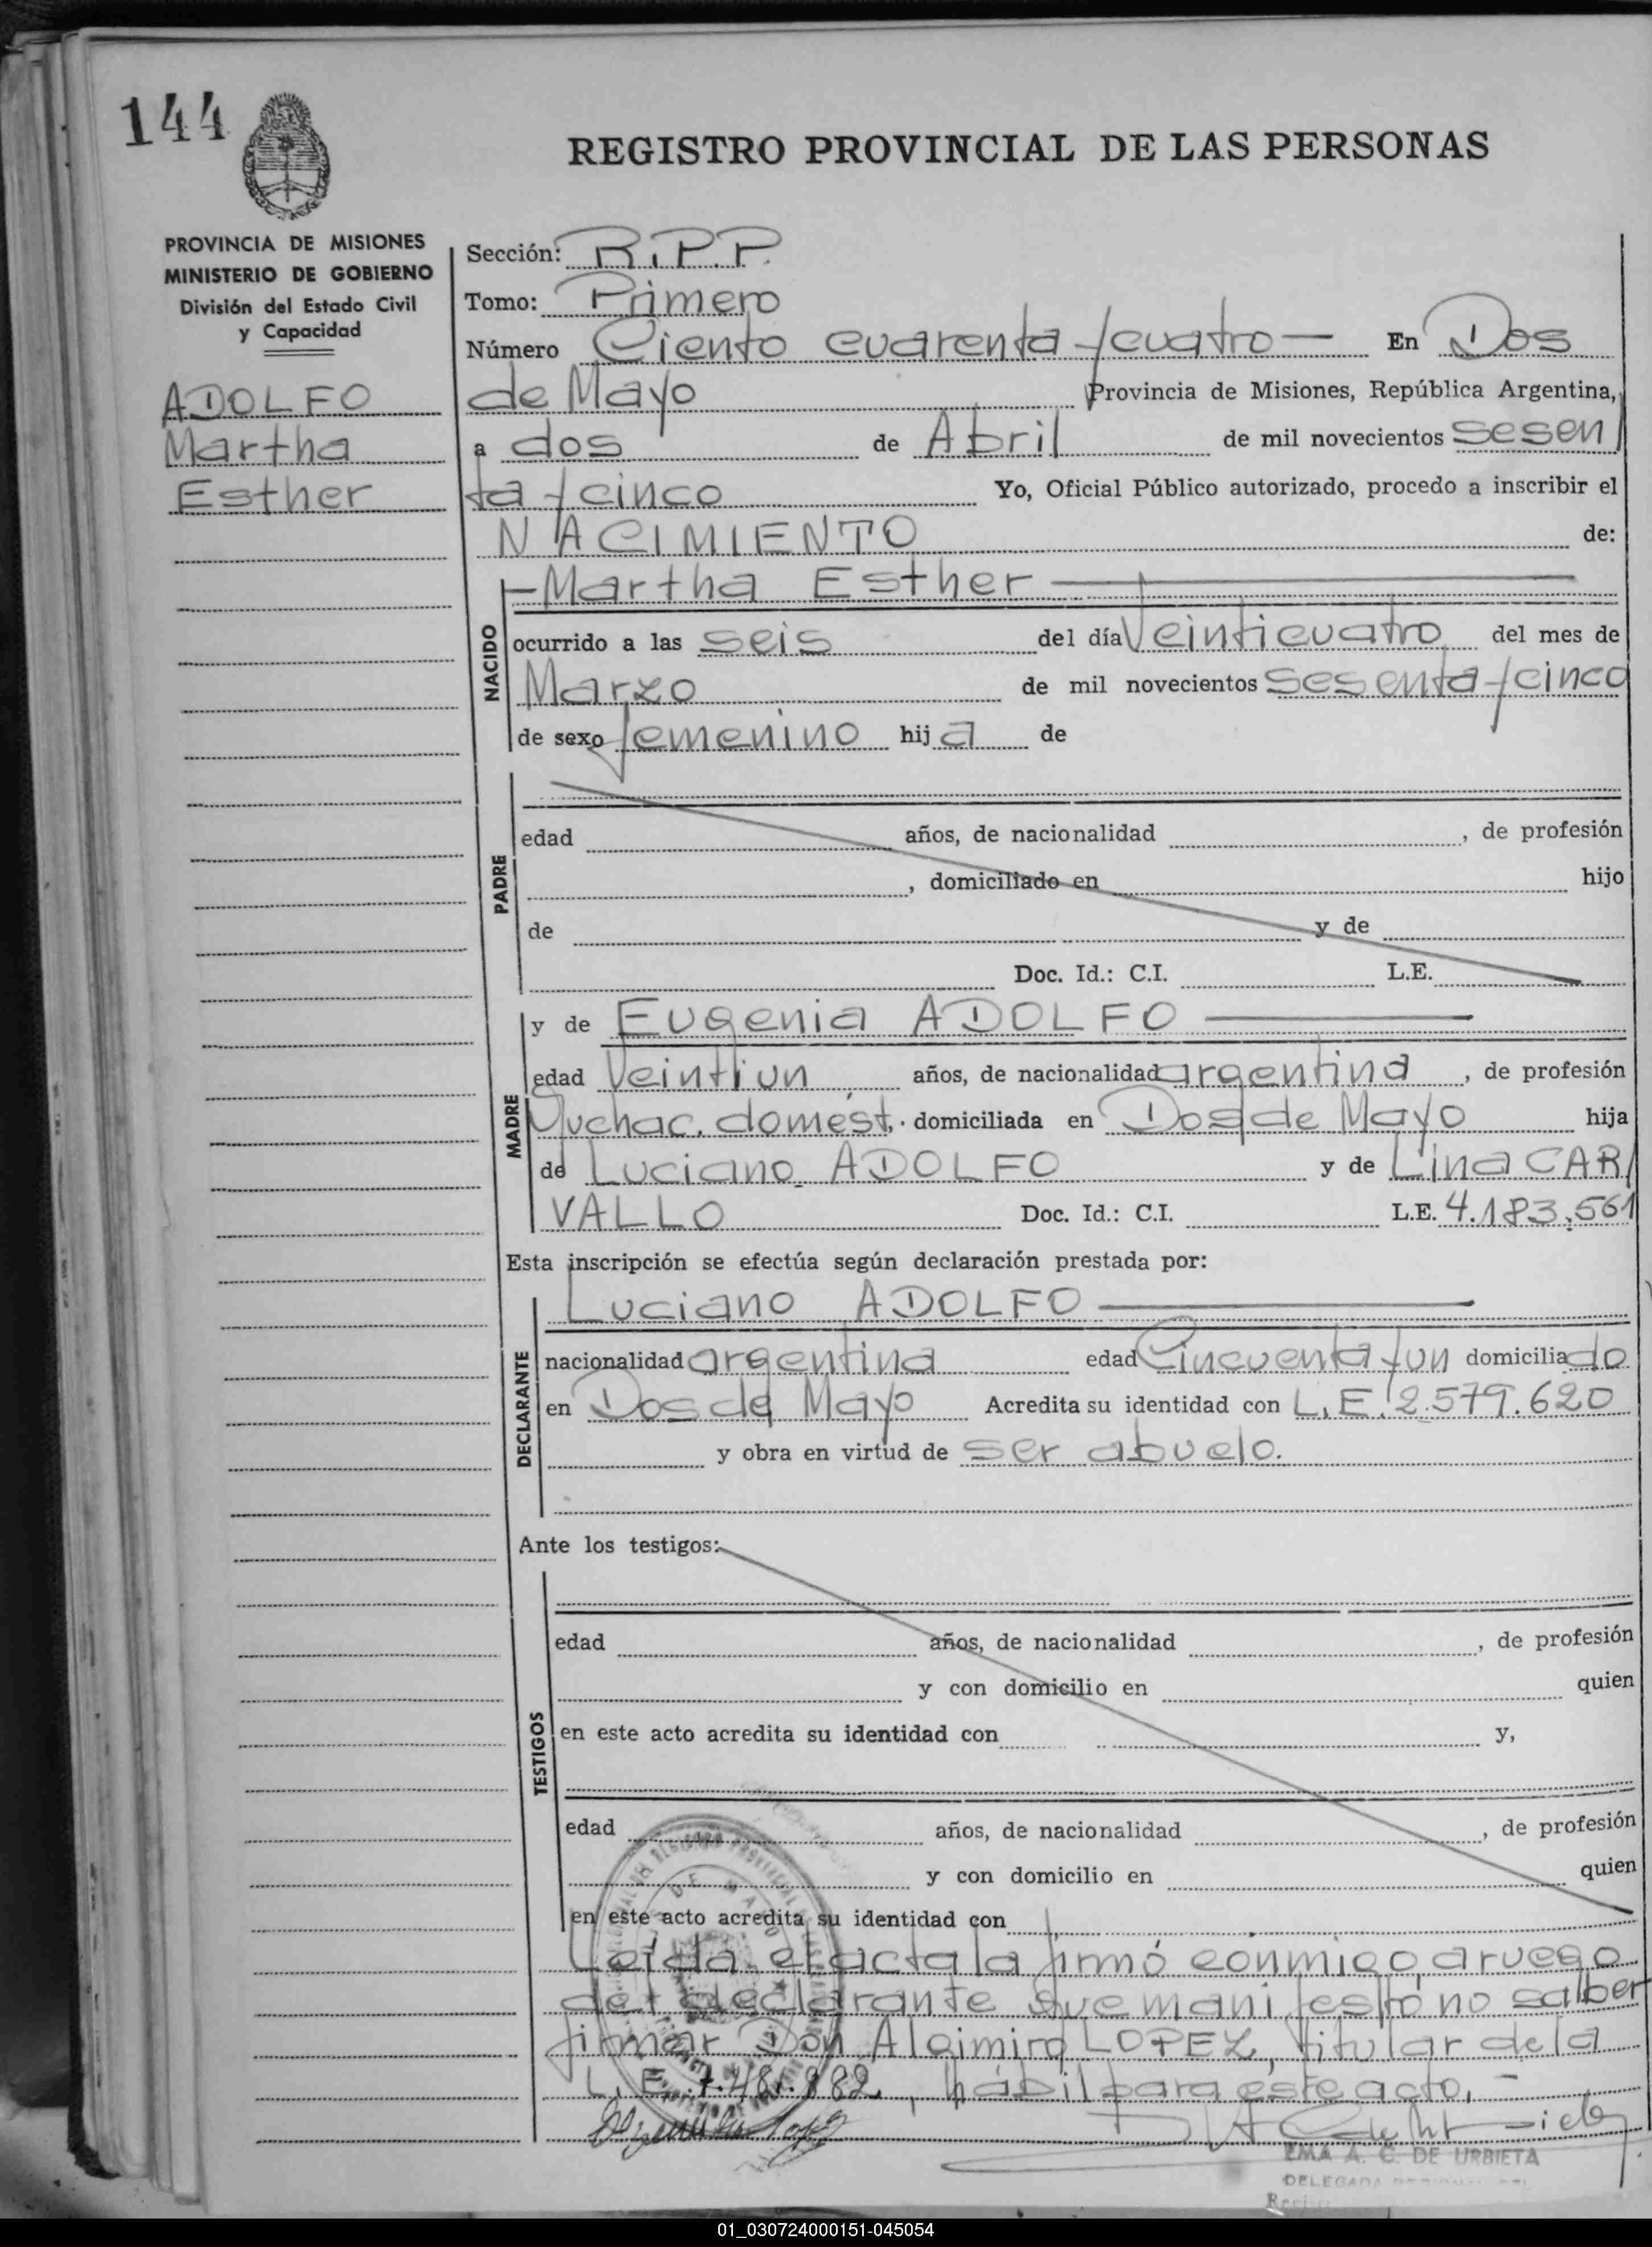 144
REGISTRO PROVINCIAL DE LAS PERSONAS
PROVINCIA DE MISIONES
MINISTERIO DE GOBIERNO
División del Estado Civil
y Capacidad
ADOLFO
Martha
Esther
Sección: R.P.P.
Tomo: Primero
Número Ciento cuarenta y cuatro — En Dos
de Mayo Provincia de Misiones, República Argentina,
a dos de Abril de mil novecientos sesen
ta y cinco Yo, Oficial Público autorizado, procedo a inscribir el
NACIMIENTO de:
NACIDO
Martha Esther
ocurrido a las seis del día Veinticuatro del mes de
Marzo de mil novecientos sesenta y cinco
de sexo femenino hija de
PADRE
edad años, de nacionalidad , de profesión
, domiciliado en hijo
de y de
Doc. Id.: C.I. L.E.
MADRE
y de Eugenia ADOLFO
edad Veintiun años, de nacionalidad argentina , de profesión
Muchac. domést. domiciliada en Dos de Mayo hija
de Luciano ADOLFO y de Lina CAR/
VALLO Doc. Id.: C.I. L.E. 4.183.561
Esta inscripción se efectúa según declaración prestada por:
DECLARANTE
Luciano ADOLFO
nacionalidad argentina edad Cincuenta y un domiciliado
en Dos de Mayo Acredita su identidad con L.E. 2.579.620
y obra en virtud de ser abuelo.
Ante los testigos:
TESTIGOS
edad años, de nacionalidad , de profesión
y con domicilio en quien
en este acto acredita su identidad con y,
edad años, de nacionalidad , de profesión
y con domicilio en quien
en este acto acredita su identidad con
Leída el acta la firmó conmigo a ruego
del declarante que manifestó no saber
firmar Don Algimiro LOPEZ, titular de la
L.E. 7.481.882, hábil para este acto.-
EMA A. C. DE URBIETA
DELEGADA
01_030724000151-045054